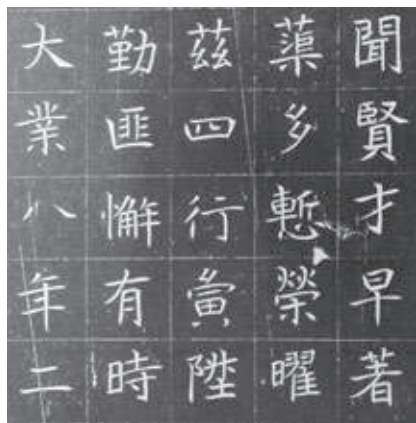 聞賢才早著
蕖慙榮曜
茲四行陛
勤匪懈有時
大業八年二